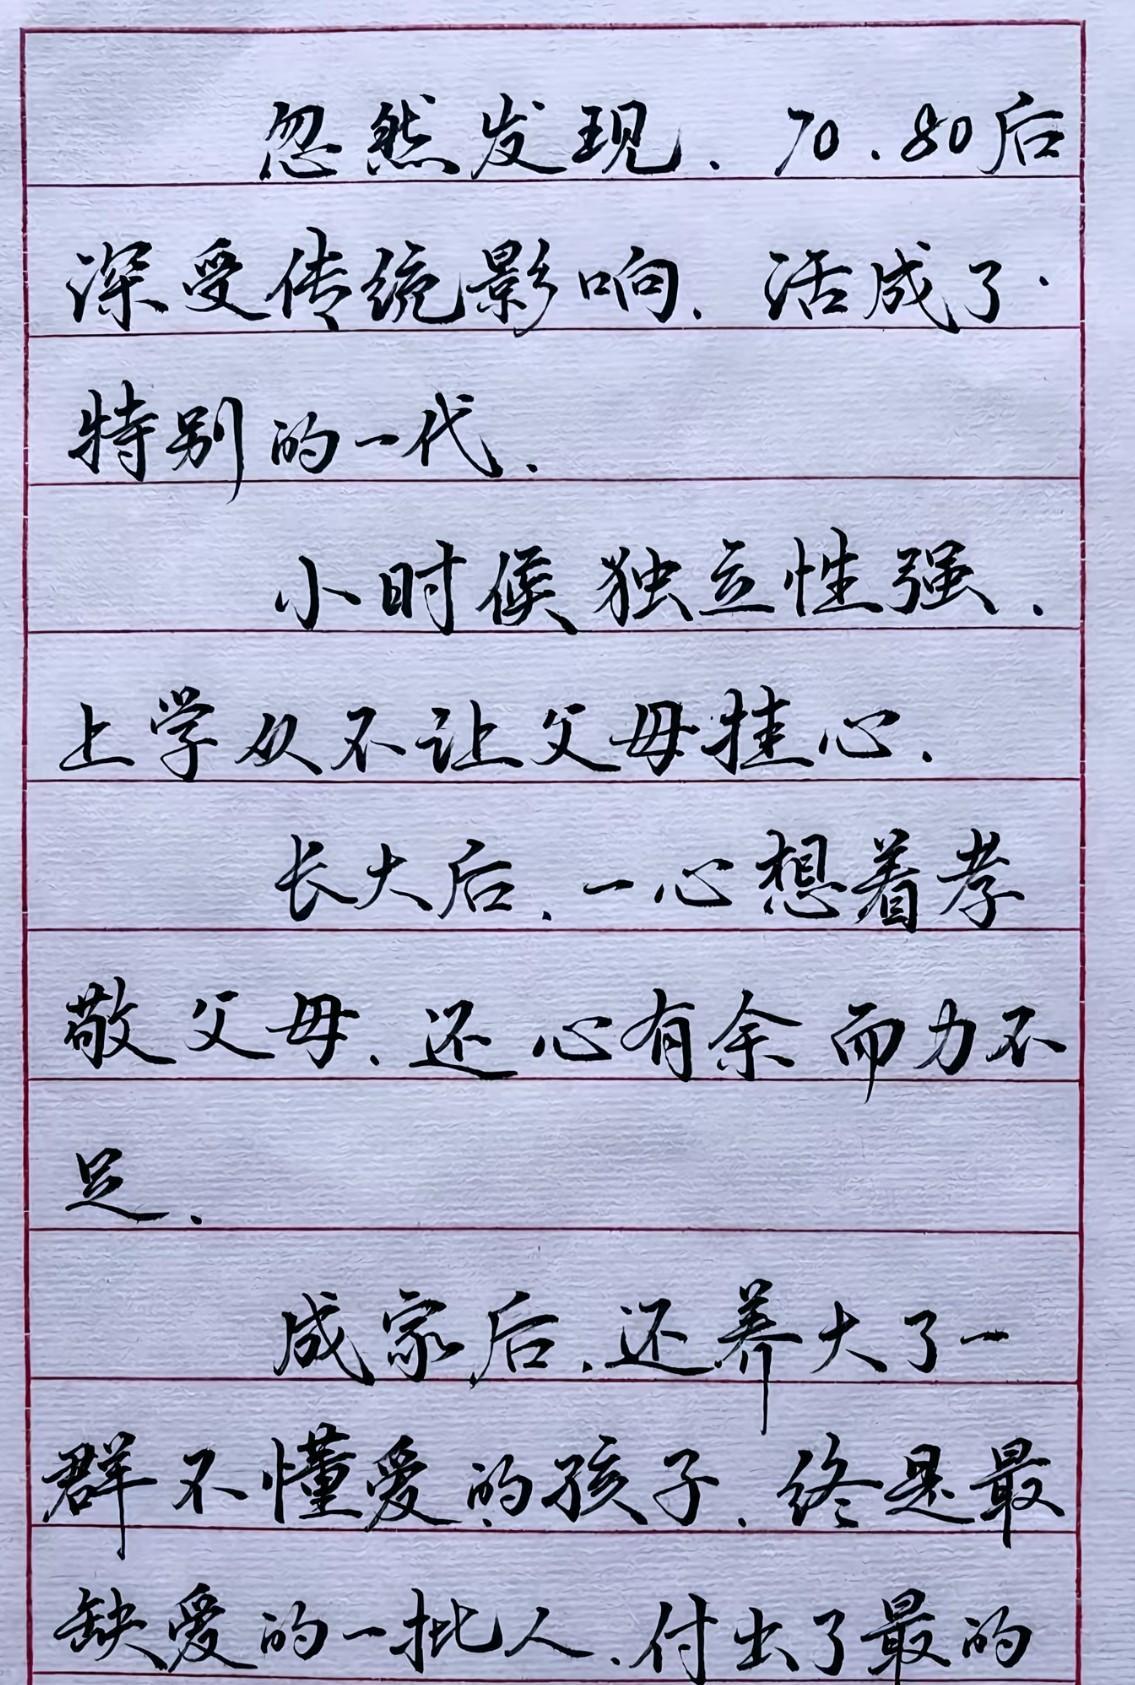 忽然发现、70、80后
深受传统影响、活成了
特别的一代、
小时候独立性强、
上学从不让父母挂心、
长大后、一心想着孝
敬父母、还心有余而力不
足、
成家后、还养大了一
群不懂爱的孩子、终是最
缺爱的一批人、付出了最的